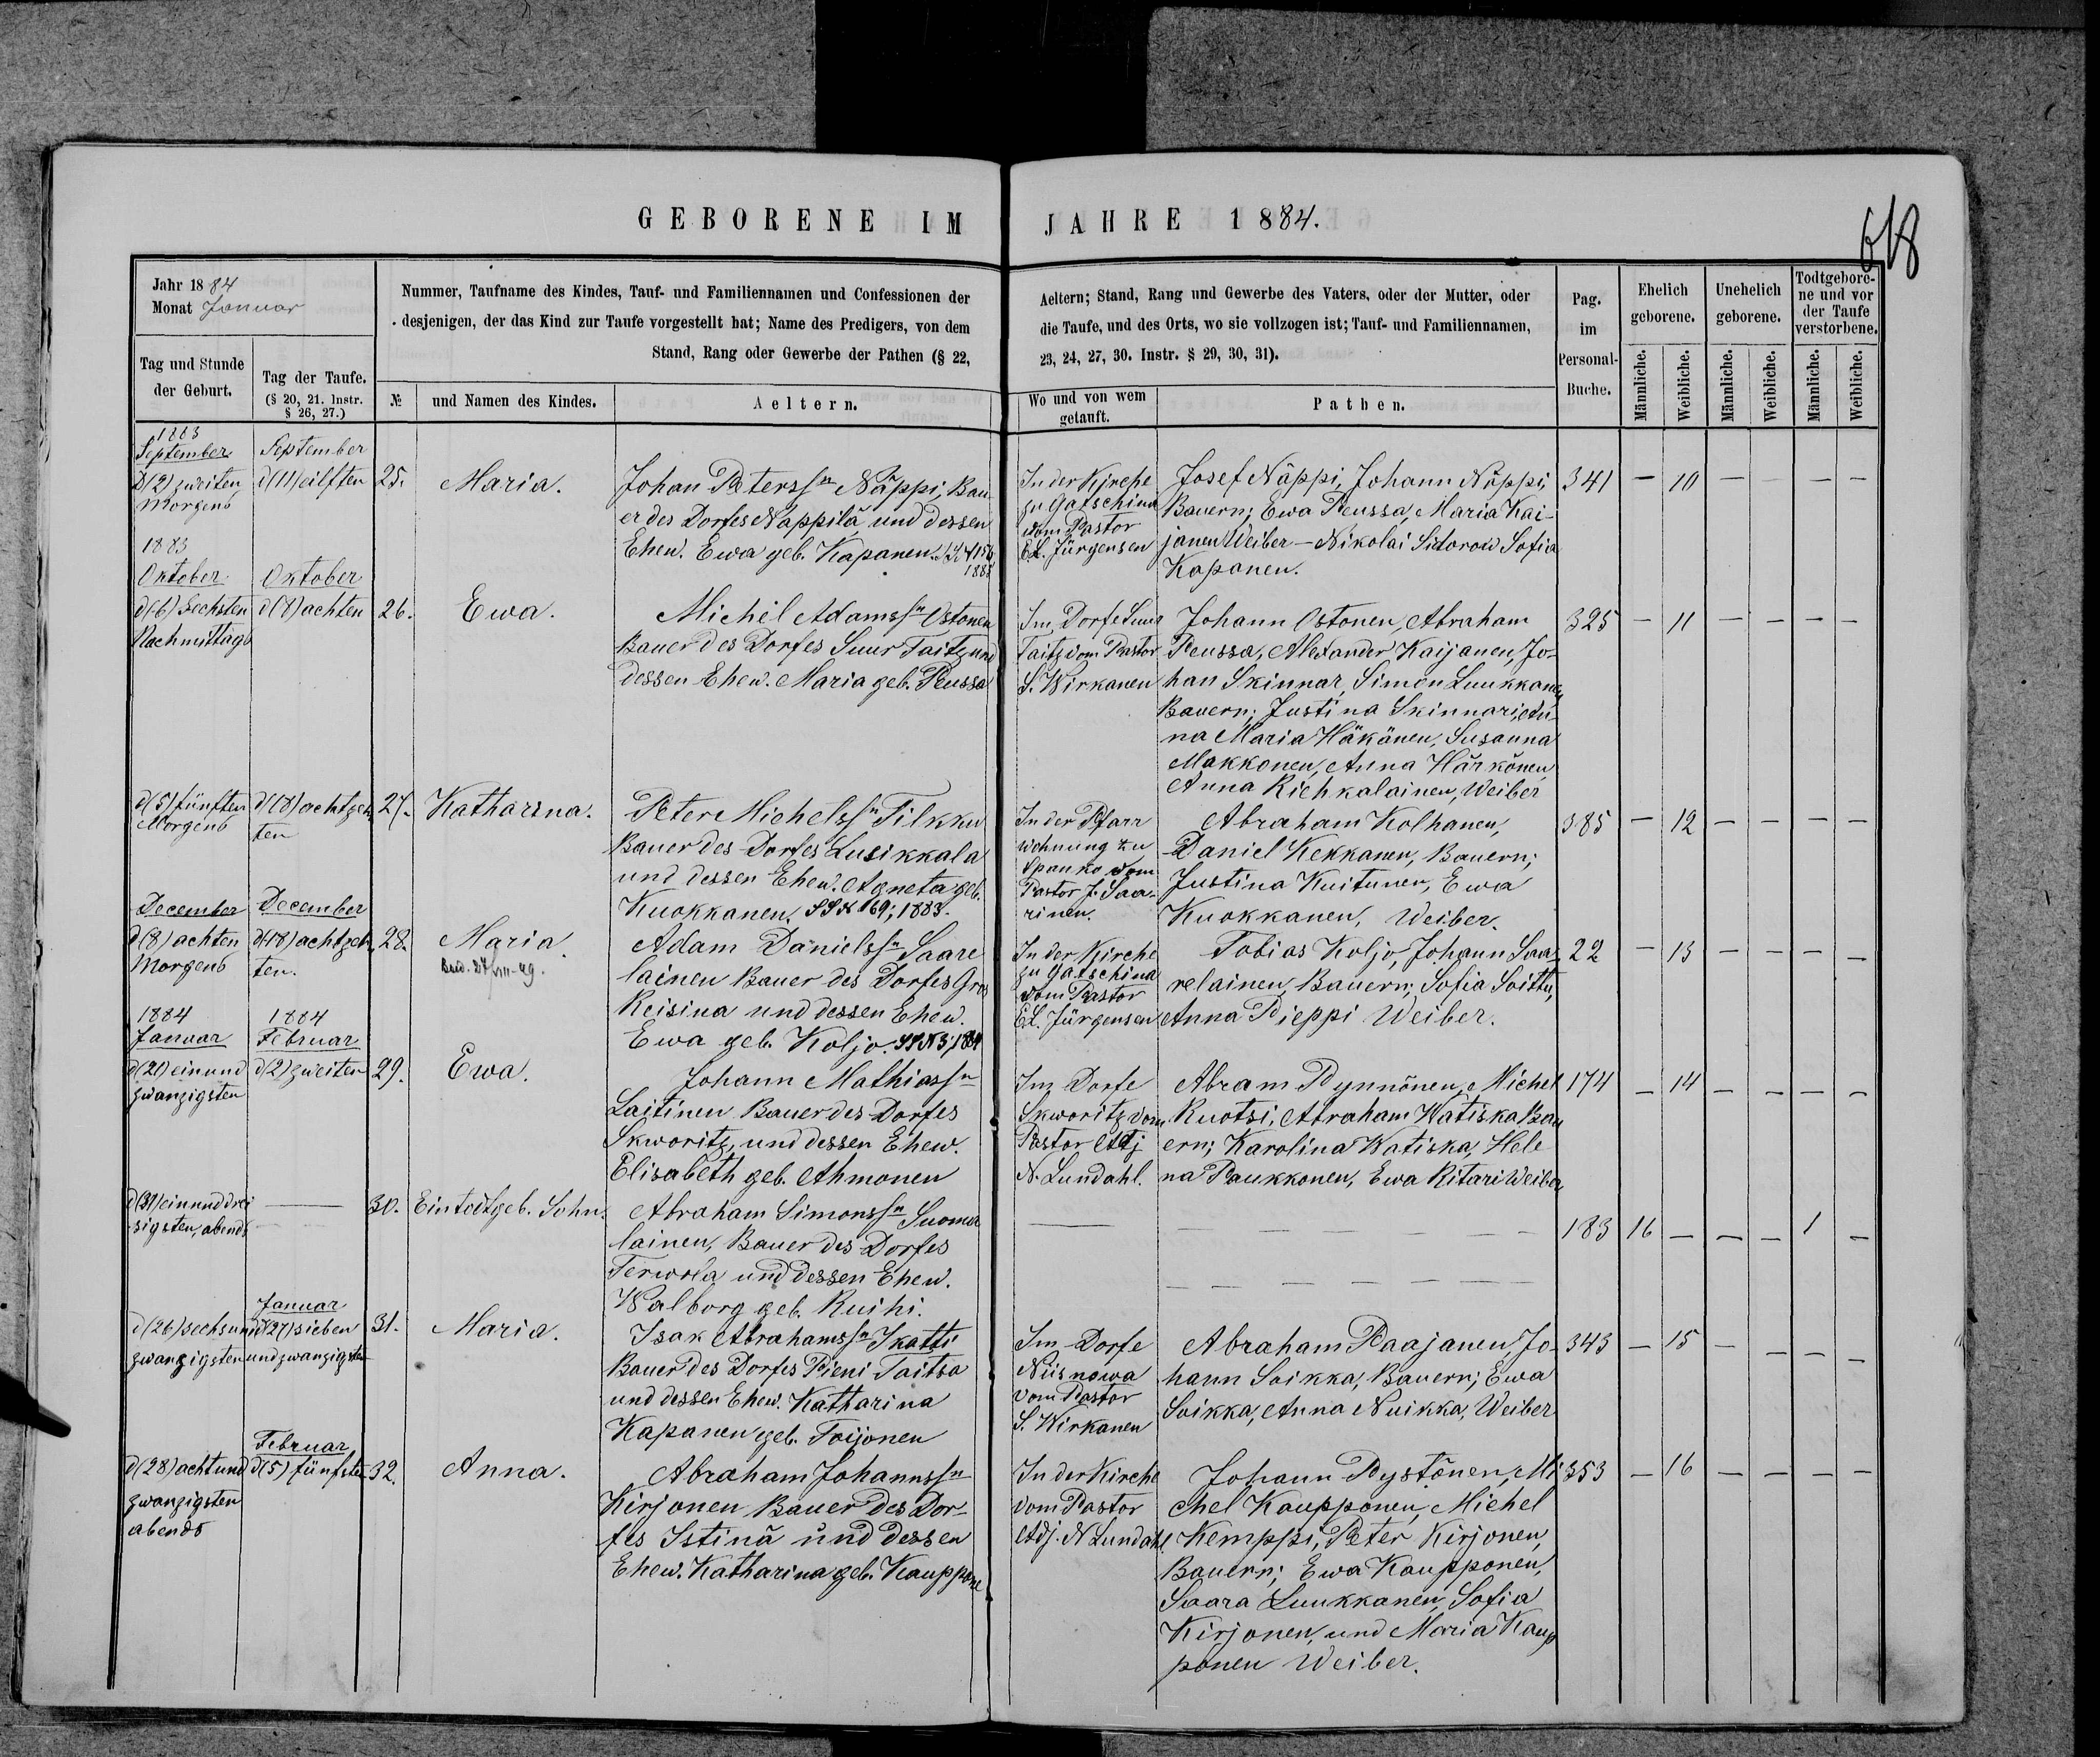 GEBORENE IM JAHRE 1884.
618
Jahr 1884
Monat Januar
Nummer, Taufname des Kindes, Tauf- und Familiennamen und Confessionen der
desjenigen, der das Kind zur Taufe vorgestellt hat; Name des Predigers, von dem
Stand, Rang oder Gewerbe der Pathen (§ 22,
Aeltern; Stand, Rang und Gewerbe des Vaters, oder der Mutter, oder
die Taufe, und des Orts, wo sie vollzogen ist; Tauf- und Familiennamen,
23, 24, 27, 30. Instr. § 29, 30, 31).
Pag.
im
Personal-
Buche.
Ehelich
geborene.
Unehelich
geborene.
Todtgebore-
ne und vor
der Taufe
verstorbene.
Tag und Stunde
der Geburt.
Tag der Taufe.
(§ 20, 21. Instr.
§ 26, 27.)
№
und Namen des Kindes.
Aeltern.
Wo und von wem
getauft.
Pathen.
Männliche.
Weibliche.
Männliche.
Weibliche.
Männliche.
Weibliche.
1883
September
D(2) zweiten
Morgens
September
d(11) eilften
25.
Maria.
Johan Peterssn Näppi, Bau-
er des Dorfes Näppilä und dessen
Ehew. Ewa geb. Kapanen.
1883
In der Kirche
zu Gatschina
vom Pastor
E. Jürgensen
Josef Näppi, Johann Näppi,
Bauern; Ewa Peussa, Maria Kai-
janen Weiber - Nikolai Sidorow Sofia
Kapanen.
341 — 10 — — — —
1883
Oktober
d(6) Sechsten
Nachmittags
Oktober
d(8) achten
26.
Ewa.
Michel Adamssn Ostonen
Bauer des Dorfes Suur Taitz und
dessen Ehew. Maria geb. Peussa
Im Dorfe Suur
Taitz vom Pastor
S. Wirkanen
Johann Ostonen, Abraham
Peussa, Alexander Kaijanen, Jo-
han Skinnar, Simon Luukkanen
Bauern; Justina Skinnari, An-
na Maria Häkänen, Susanna
Makkonen, Anna Härkönen
Anna Riehkalainen, Weiber
325 — 11 — — — —
d(5) fünften
Morgens
d(18) achtzehn
ten
27.
Katharina.
Peter Michelssn Tilkku
Bauer des Dorfes Lusikkala
und dessen Ehew. Agneta geb.
Kuokkanen. SS № 169; 1883.
In der Pfarr
wohnung zu
Spanko vom
Pastor J. Saa-
rinen.
Abraham Kolhanen,
Daniel Kekkanen, Bauern;
Justina Kuitunen, Ewa
Kuokkanen, Weiber.
385 — 12 — — — —
December
d(8) achten
Morgens
December
d(18) achtzehn
ten.
28.
Maria.
27/VIII-49.
Adam Danielssn Saare
lainen Bauer des Dorfes Gros
Reisina und dessen Ehew.
Ewa geb. Koljo. SS № 3; 1884
In der Kirche
zu Gatschina
vom Pastor
E. Jürgensen
Tobias Koljo, Johann Saa
relainen, Bauern; Sofia Soittu,
Anna Pieppi Weiber.
22 — 13 — — — —
1884
Januar
d(21) einund
zwanzigsten
1884
Februar
d(2) zweiten
29.
Ewa.
Johann Mathiassn
Laitinen Bauer des Dorfes
Skworitz, und dessen Ehew.
Elisabeth geb. Ahmonen
Im Dorfe
Skworitz vom
Pastor Adj
N. Lundahl.
Abram Pynnönen, Michel
Ruotsi, Abraham Watiska Bau
ern; Karolina Watiska, Hele
na Paukkonen, Ewa Ritari Weiber
174 — 14 — — — —
d(31) einunddrei
sigsten, abends
—
30.
Ein todtgeb. Sohn.
Abraham Simonssn Suoma
lainen, Bauer des Dorfes
Terwola und dessen Ehew.
Walborg geb. Ruihi.
183 16 — — — 1 —
d(26) sechsund
zwanzigsten
Januar
d(27) sieben
undzwanzigsten
31.
Maria.
Isak Abrahamssn Skatti
Bauer des Dorfes Pieni Taitsa
und dessen Ehew. Katharina
Kapanen geb. Toijonen
Im Dorfe
Niisnowa
vom Pastor
S. Wirkanen
Abraham Paajanen, Jo-
hann Soikka, Bauern; Ewa
Soikka, Anna Nuikka, Weiber
343 — 15 — — — —
d(28) achtund
zwanzigsten
abends
Februar
d(5) fünften
32.
Anna.
Abraham Johannssn
Kirjonen Bauer des Dor-
fes Istinä und dessen
Ehew. Katharina geb. Kauppone
In der Kirche
vom Pastor
Adj. N Lundahl.
Johann Pystönen, Mi
chel Kaupponen, Michel
Kemppi, Peter Kirjonen,
Bauern; Ewa Kaupponen,
Saara Luukkanen, Sofia
Kirjonen, und Maria Kaup
ponen Weiber.
353 — 16 — — — —